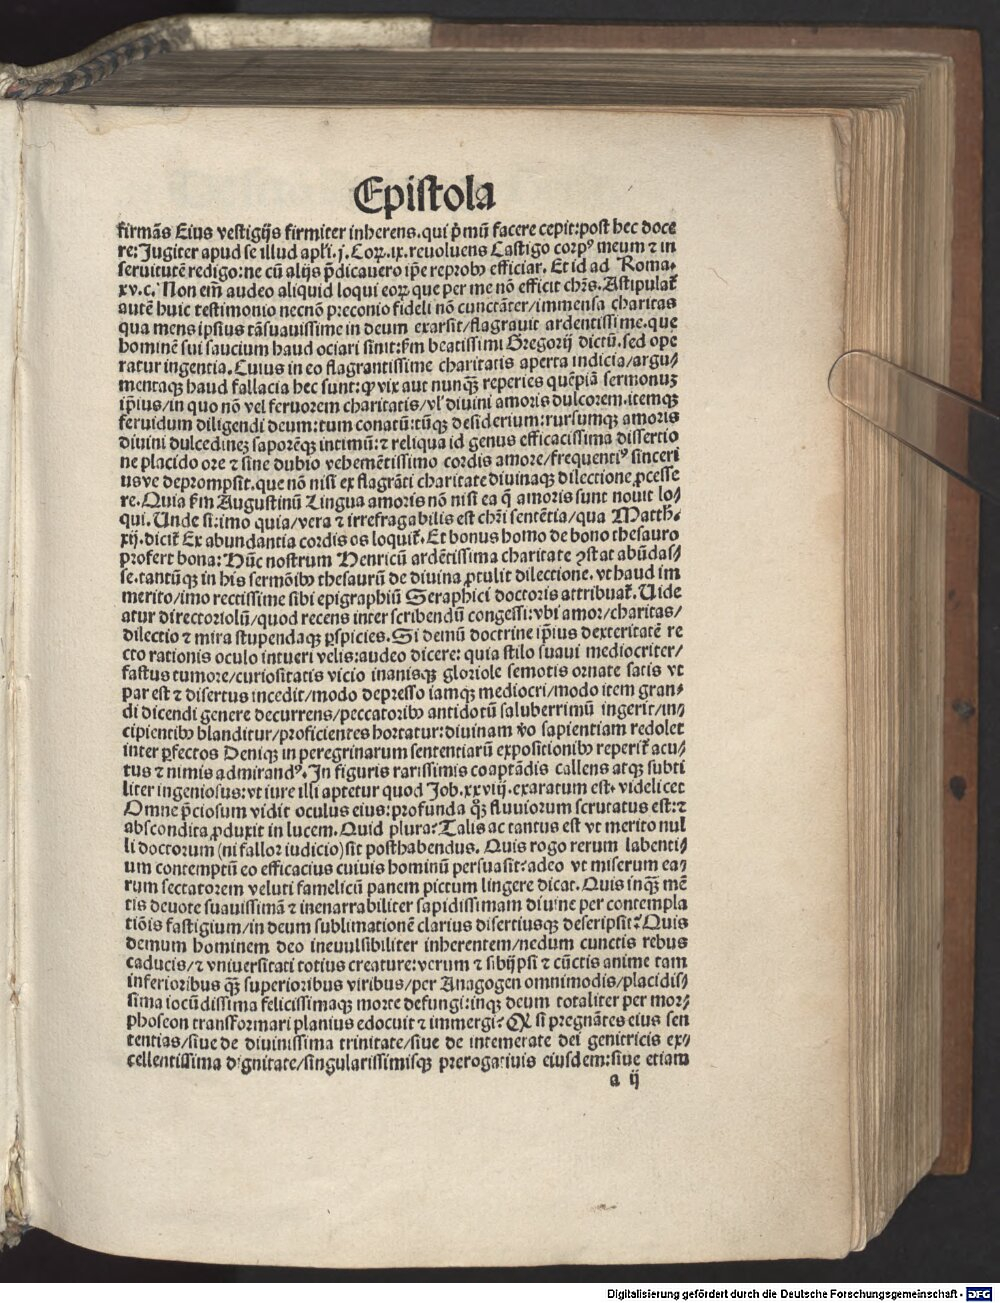 Epistola
firmãs Eius vestigijs firmiter inherens.qui p̃mũ facere cepit:post hec doce
re:Jugiter apud se illud apl'i.j.Coꝝ.ix.reuoluens Castigo corpꝰ meum ⁊ in
seruitutẽ redigo:ne cũ alijs p̃dicauero ip̃e reprobꝰ efficiar. Et id ad Roma.
xv.c. Non em̃ audeo aliquid loqui eoꝝ que per me nõ efficit chr̃s. Astipulat᷑
autẽ huic testimonio necnõ preconio fideli nõ cunctãter/immensa charitas
qua mens ipsius tãsuauissime in deum exarsit/flagrauit ardentissime.que
hominẽ sui saucium haud ociari sinit:scd̃m beatissimi Gregorij dictũ.sed ope
ratur ingentia. Cuius in eo flagrantissime charitatis aperta indicia/argu/
mentaqꝫ haud fallacia hec sunt:ꝙ vix aut nunqꝫ̃ reperies quẽpiã sermonuꝫ
ip̃ius/in quo nõ vel feruorem charitatis/vl' diuini amoris dulcorem.itemqꝫ
feruidum diligendi deum:tum conatũ:tũqꝫ desiderium:rursumqꝫ amoris
diuini dulcedineꝫ saporẽqꝫ intimũ:⁊ reliqua id genus efficacissima dissertio
ne placido ore ⁊ sine dubio vehemẽtissimo cordis amore/frequentiꝰ sinceri
usve depromps̃it.que nõ nisi ex flagrãti charitate diuinaqꝫ dilectione ꝓcesse
re.Quia scd̃m Augustinũ Lingua amoris nõ nisi ea q̃ amoris sunt nouit lo/
qui.Unde si:imo quia/vera ⁊ irrefragabilis est chr̃i sentẽtia/qua Matth.
xij.dicit᷑ Ex abundantia cordis os loquit᷑. Et bonus homo de bono thesauro
profert bona: Hũc nostrum Henricũ ardẽtissima charitate ꝯstat abũdas/
se.tantũqꝫ in his sermõibꝰ thesaurũ de diuina ꝓtulit dilectione.vt haud im
merito/imo rectissime sibi epigraphiũ Seraphici doctoris attribuat᷑. Uide
atur directoriolũ/quod recens inter scribendũ congessi:vbi amor/charitas/
dilectio ⁊ mira stupendaqꝫ ꝑspicies. Si demũ doctrine ip̃ius dexteritatẽ re
cto rationis oculo intueri velis:audeo dicere: quia stilo suaui mediocriter/
fastus tumore/curiositatis vicio inanisqꝫ gloriole semotis ornate satis vt
par est ⁊ disertus incedit/modo depresso iamqꝫ mediocri/modo item gran/
di dicendi genere decurrens/peccatoribꝰ antidotũ saluberrimũ ingerit/in/
cipientibꝰ blanditur/proficientes hortatur:diuinam ṽo sapientiam redolet
inter ꝑfectos Deniqꝫ in peregrinarum sententiarũ expositionibꝰ reperit᷑ acu/
tus ⁊ nimis admirandꝰ. In figuris rarissimis coaptãdis callens atqꝫ subti
liter ingeniosus:vt iure illi aptetur quod Job.xxviij.exaratum est. videlicet
Omne p̃ciosum vidit oculus eius:profunda qꝫ̊ fluuiorum scrutatus est:⁊
abscondita ꝓduxit in lucem. Quid plura? Talis ac tantus est vt merito nul
li doctorum (ni fallor iudicio) sit posthabendus. Quis rogo rerum labenti/
um contemptũ eo efficacius cuiuis hominũ persuasit?adeo vt miserum ea/
rum sectatorem veluti famelicũ panem pictum lingere dicat. Quis inqꝫ̃ mẽ
tis deuote suauissimã ⁊ inenarrabiliter sapidissimam diuine per contempla
tiõis fastigium/in deum sublimationẽ clarius disertiusqꝫ descripsit? Quis
demum hominem deo ineuulsibiliter inherentem/nedum cunctis rebus
caducis/⁊ vniuersitati totius creature:verum ⁊ sibijpsi ⁊ cũctis anime tam
inferioribus qꝫ̃ superioribus viribus/per Anagogen omnimodis/placidis/
sima iocũdissima felicissimaqꝫ morte defungi:inqꝫ deum totaliter per mor/
phoseon transformari planius edocuit ⁊ immergi? Qꝛ si pregnãtes eius sen
tentias/siue de diuinissima trinitate/siue de intemerate dei genitricis ex/
cellentissima dignitate/singularissimisqꝫ prerogatiuis eiusdem:siue etiam
a ij
Digitalisierung gefördert durch die Deutsche Forschungsgemeinschaft - DFG